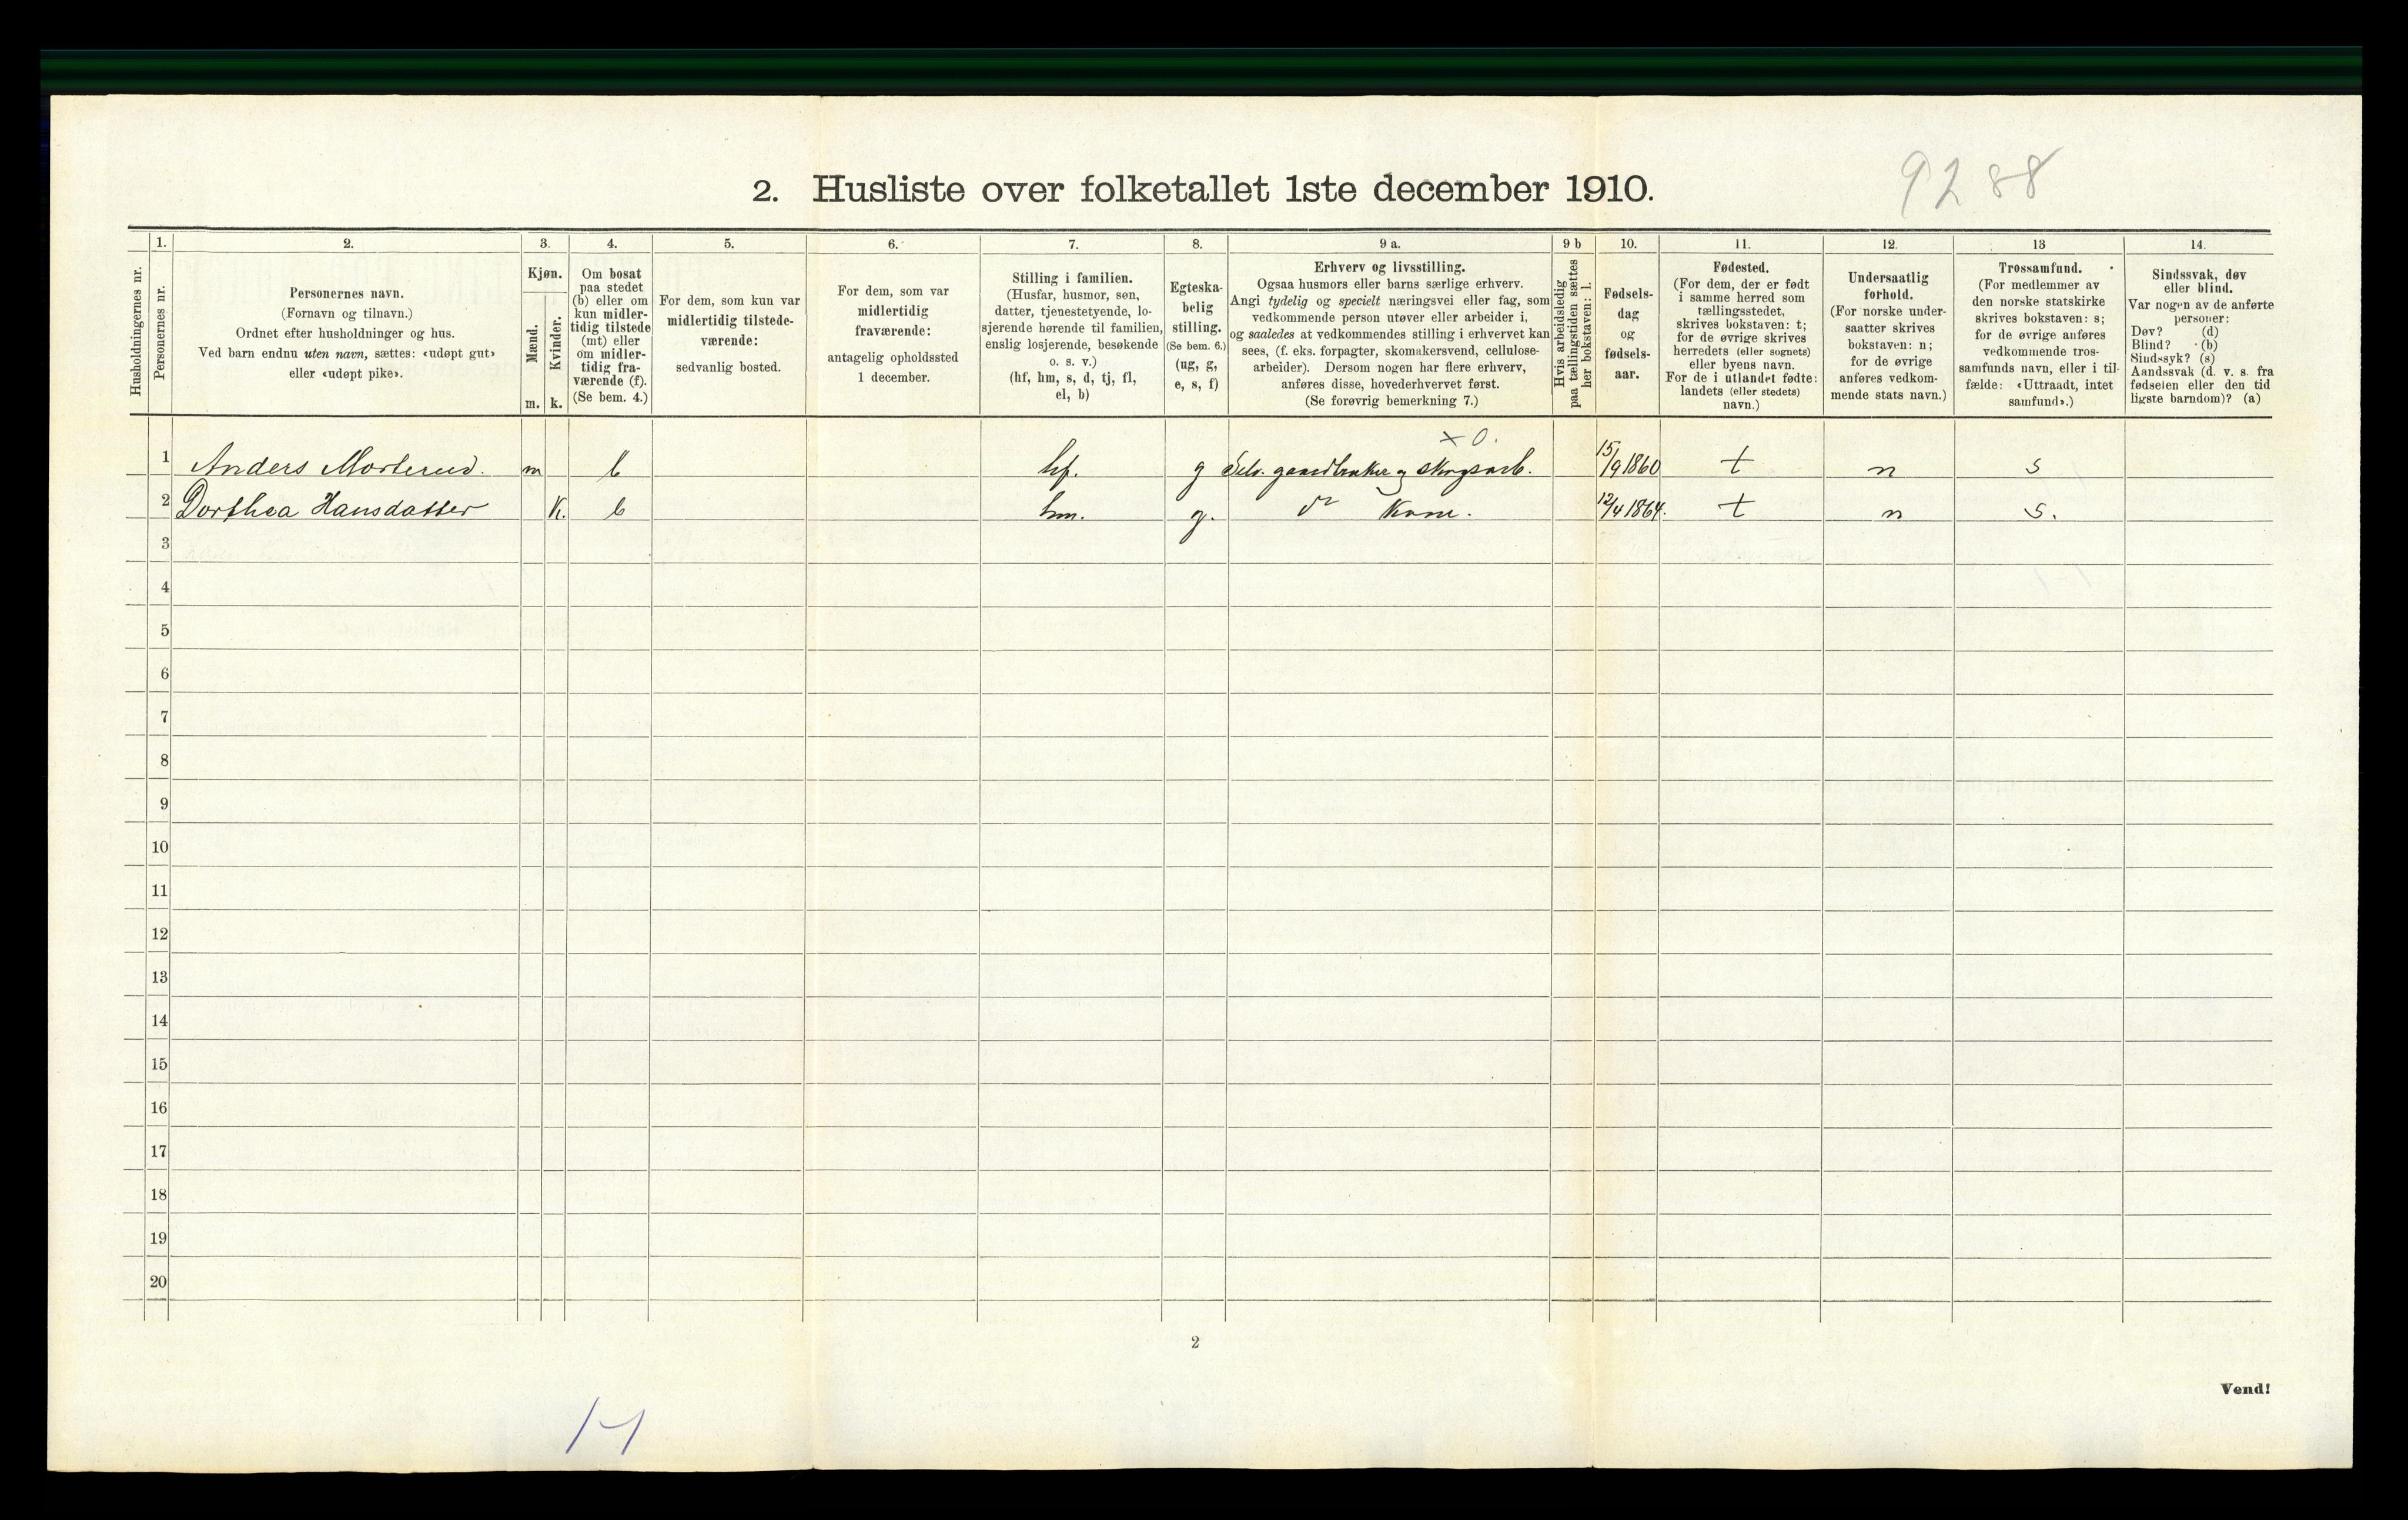 9288
2. Husliste over folketallet 1ste december 1910.
Husholdningernes nr.
1.
Personernes nr.
2.
Personernes navn.
(Fornavn og tilnavn.)
Ordnet efter husholdninger og hus.
Ved barn endnu uten navn, sættes: «udøpt gut»
eller «udøpt pike».
3.
Kjøn.
Mænd.
Kvinder.
m. k.
4.
Om bosat
paa stedet
(b) eller om
kun midler-
tidig tilstede
(mt) eller
om midler-
tidig fra-
værende (f).
(Se bem. 4.)
5.
For dem, som kun var
midlertidig tilstede-
værende:
sedvanlig bosted.
6.
For dem, som var
midlertidig
fraværende:
antagelig opholdssted
1 december.
7.
Stilling i familien.
(Husfar, husmor, søn,
datter, tjenestetyende, lo-
sjerende hørende til familien,
enslig losjerende, besøkende
o. s. v.)
(hf, hm, s, d, tj, fl,
el, b)
8.
Egteska-
belig
stilling.
(Se bem. 6.)
(ug, g,
e, s, f)
9 a.
Erhverv og livsstilling.
Ogsaa husmors eller barns særlige erhverv.
Angi tydelig og specielt næringsvei eller fag, som
vedkommende person utøver eller arbeider i,
og saaledes at vedkommendes stilling i erhvervet kan
sees, (f. eks. forpagter, skomakersvend, cellulose-
arbeider). Dersom nogen har flere erhverv,
anføres disse, hovederhvervet først.
(Se forøvrig bemerkning 7.)
9 b
Hvis arbeidsledig
paa tællingstiden sættes
her bokstaven: l.
10.
Fødsels-
dag
og
fødsels-
aar.
11.
Fødested.
(For dem, der er født
i samme herred som
tællingsstedet,
skrives bokstaven: t;
for de øvrige skrives
herredets (eller sognets)
eller byens navn.
For de i utlandet fødte:
landets (eller stedets)
navn.)
12.
Undersaatlig
forhold.
(For norske under-
saatter skrives
bokstaven: n;
for de øvrige
anføres vedkom-
mende stats navn.)
13
Trossamfund.
(For medlemmer av
den norske statskirke
skrives bokstaven: s;
for de øvrige anføres
vedkommende tros-
samfunds navn, eller i til-
fælde: «Uttraadt, intet
samfund».)
14.
Sindssvak, døv
eller blind.
Var nogen av de anførte
personer:
Døv? (d)
Blind? (b)
Sindssyk? (s)
Aandssvak (d. v. s. fra
fødselen eller den tid
ligste barndom)? (a)
x 0.
1 Anders Morterud. m b hf. g Selv. gaardbruker og skogsarb. 15/9 1860 t n s
2 Dorthea Hansdatter k. b hm. g. do Kone. 12/4 1864. t n s.
3
4
5
6
7
8
9
10
11
12
13
14
15
16
17
18
19
20
2
Vend!